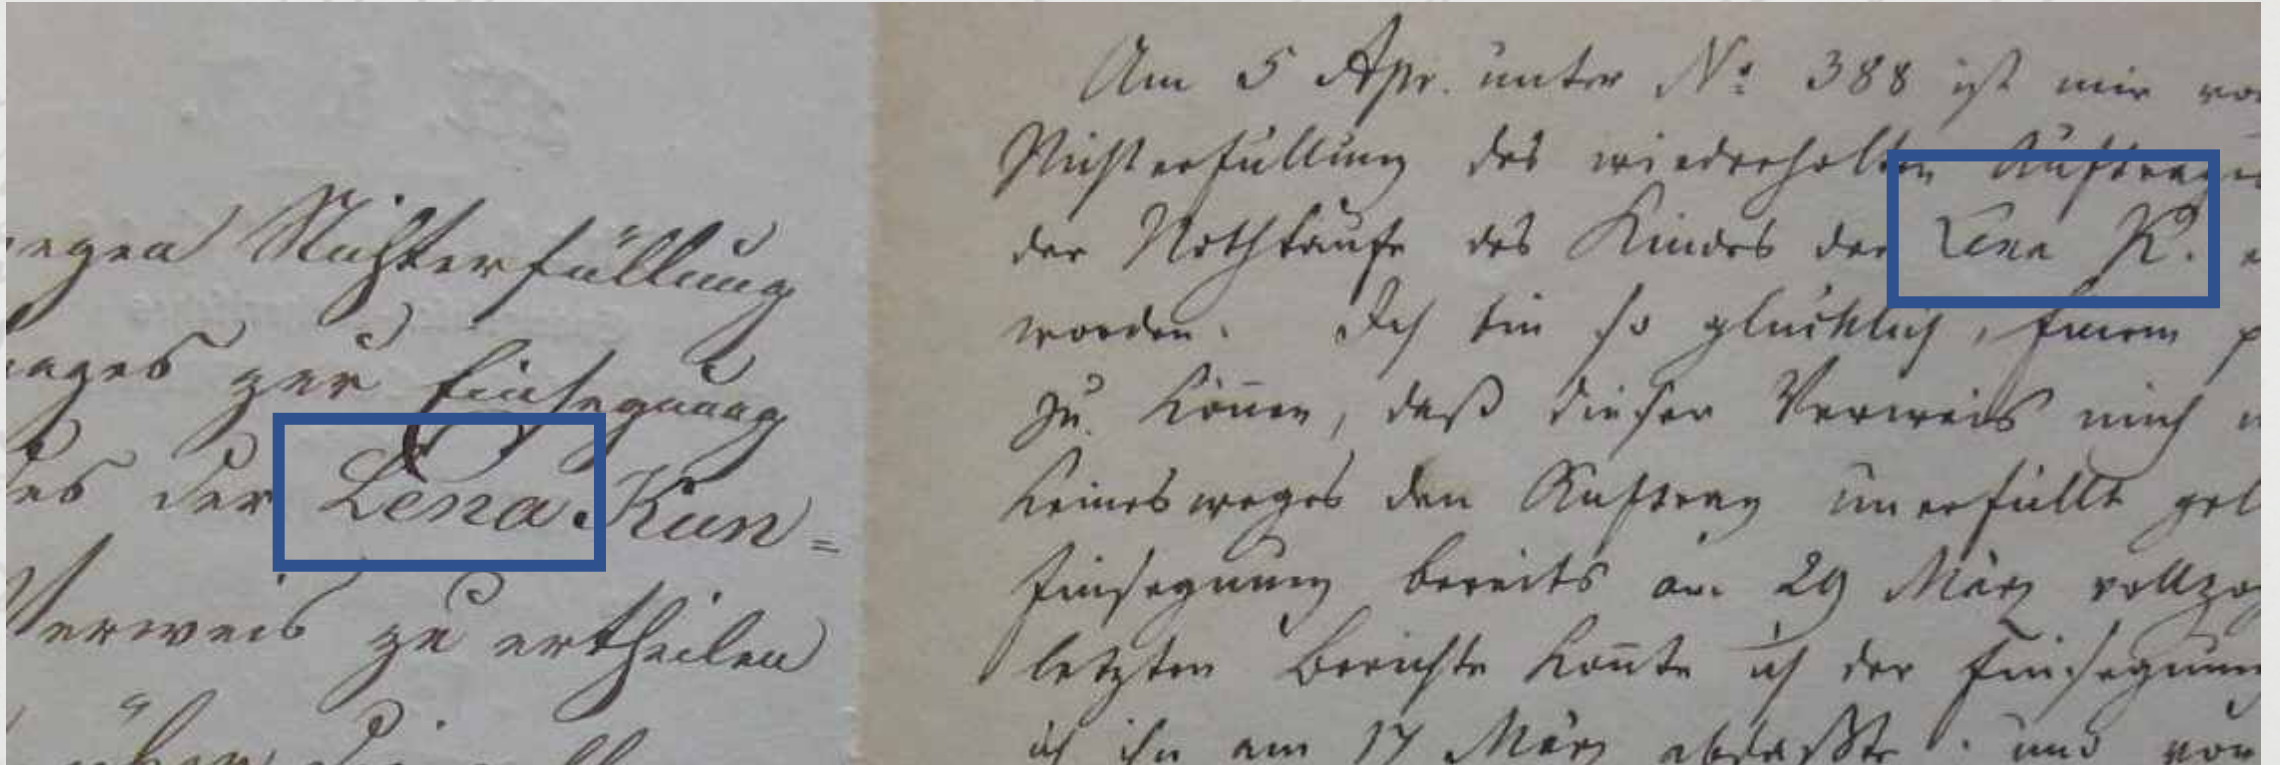 egen Nichterfüllung
ages zur Einsegnung
es der Lena Kun=
Verweis zu ertheilen
über
Am 5 Apr. unter No 388 ist mir vo
Nichterfüllung des wiederholten Auftrages
der Nothtaufe des Kindes der Lena K. e
worden. Ich bin so glücklich, Einem p
zu können, daß dieser Verweis mich n
keinesweges den Auftrag unerfüllt gel
Einsegnung bereits am 29 März vollzog
letzten Berichte konnte ich der Einsegnung
ich ihn am 17 März abfaßte und von